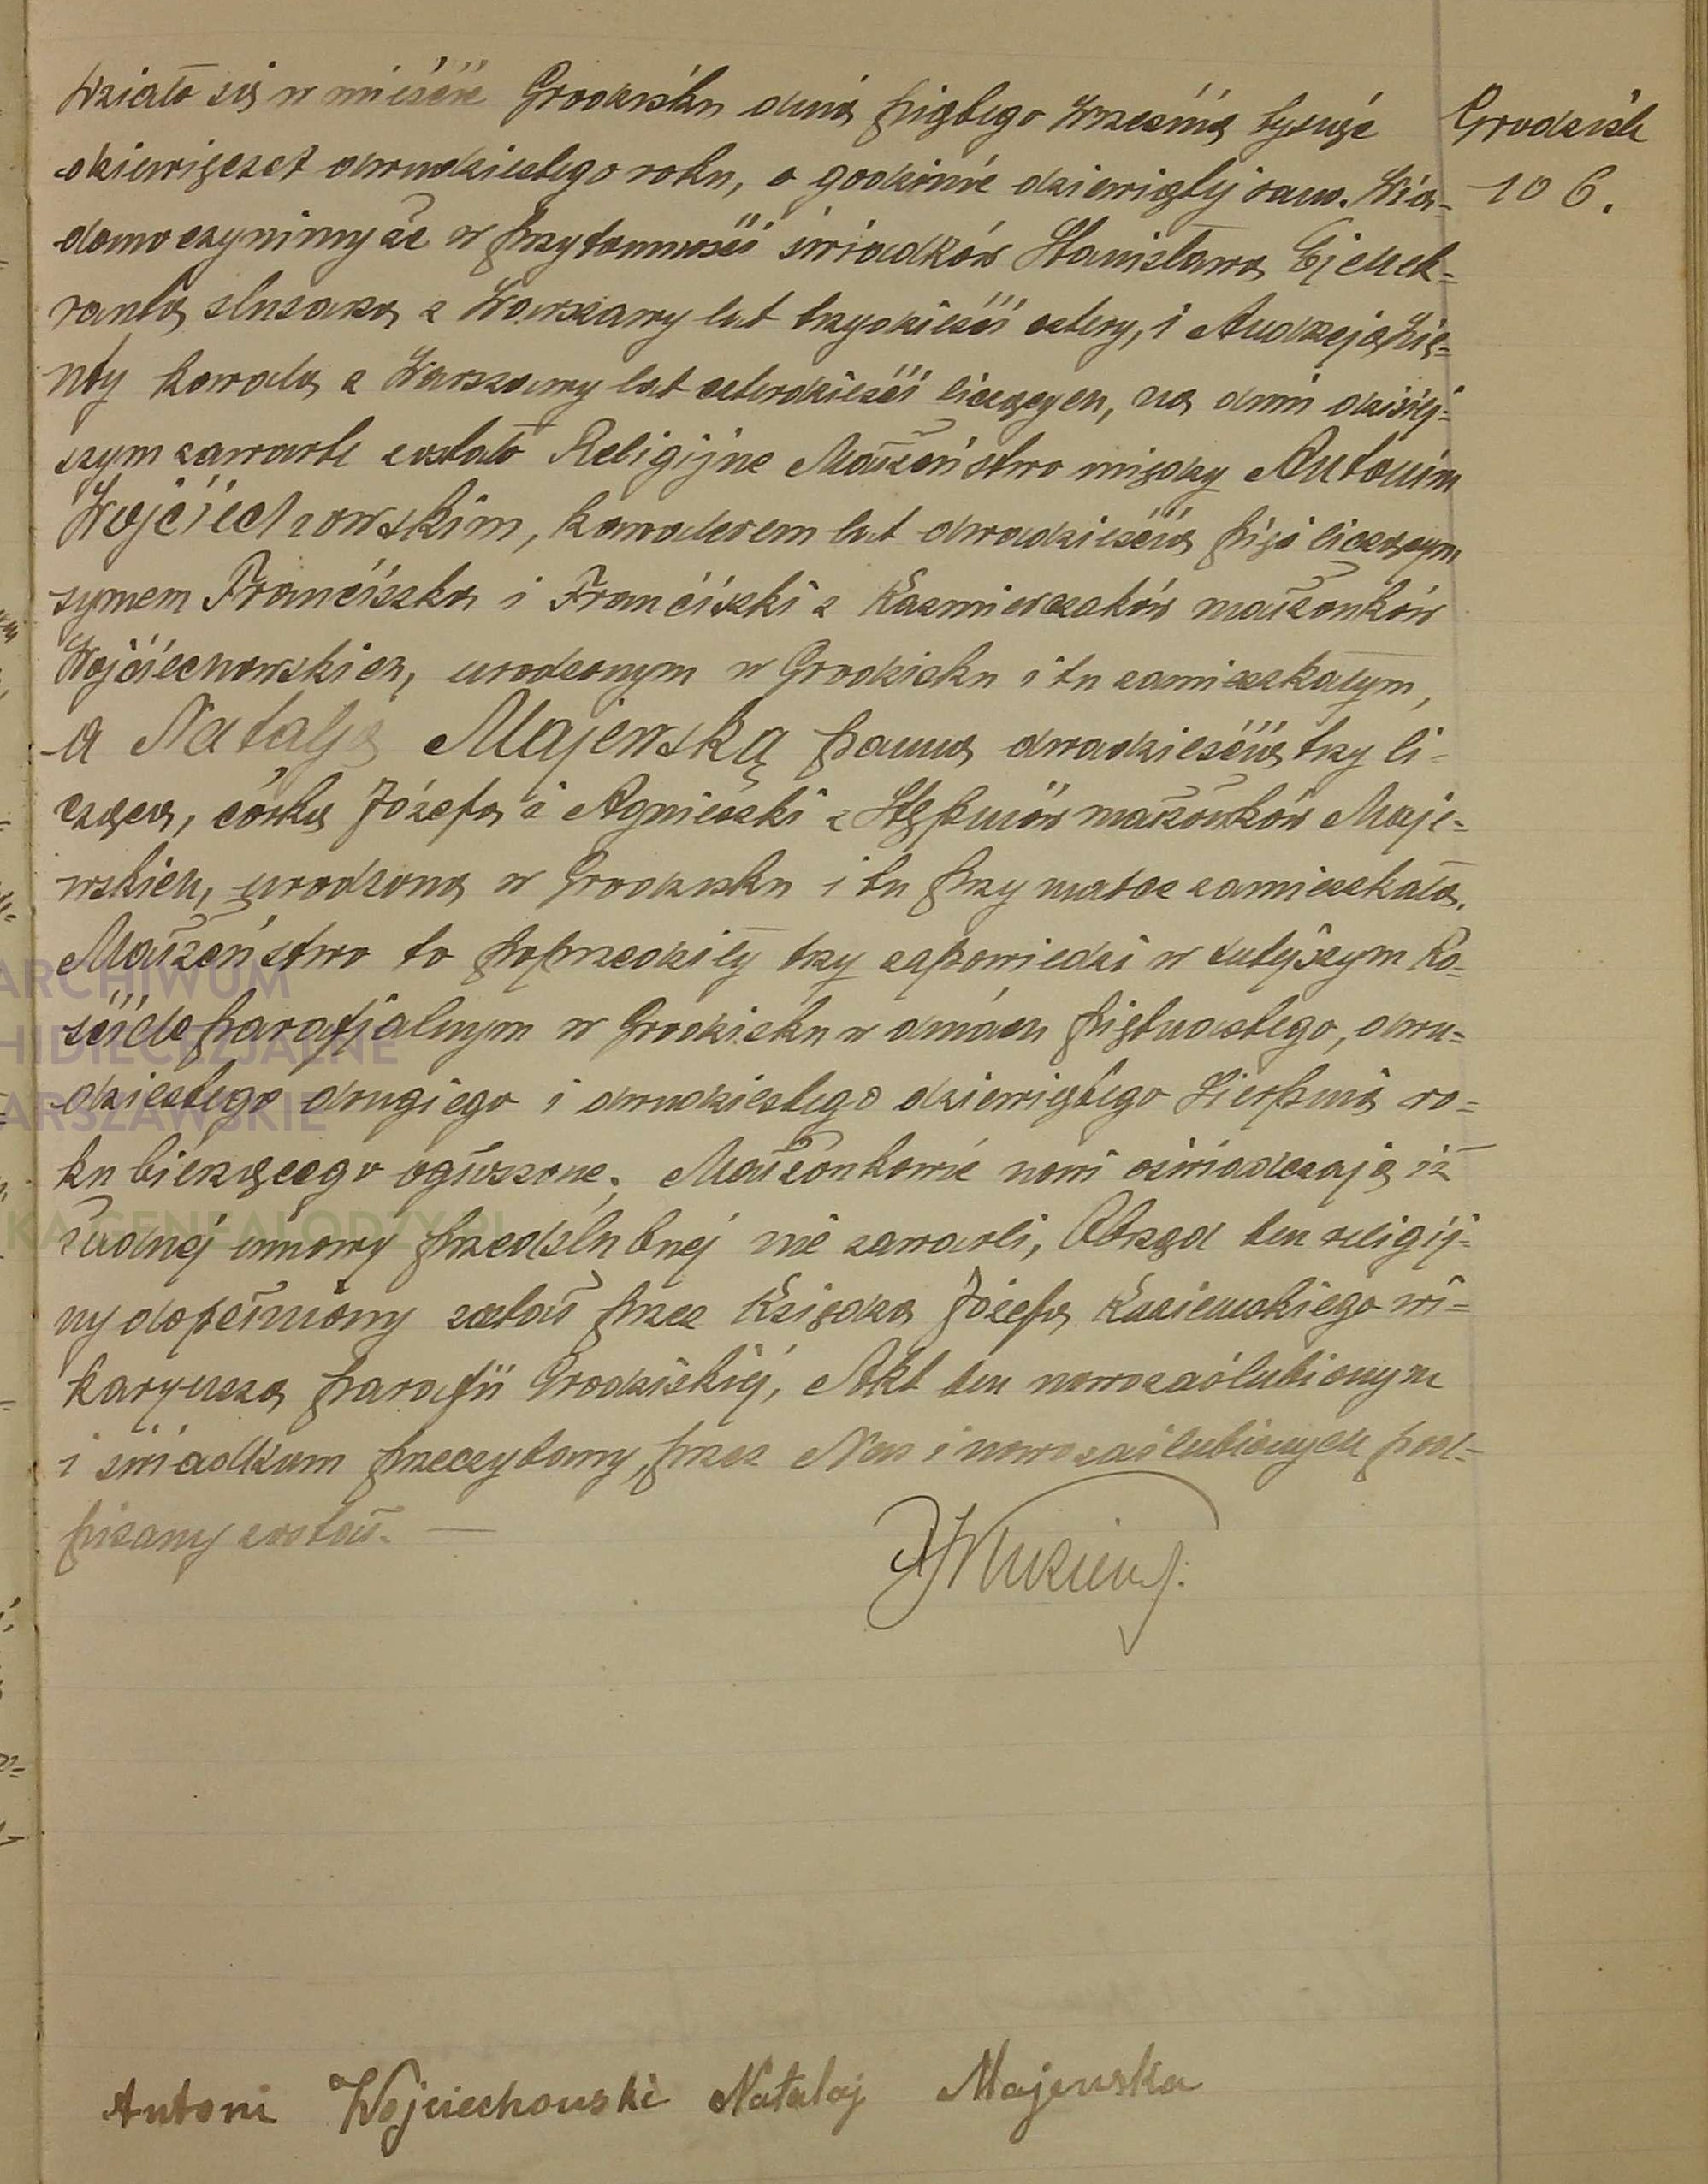 Działo się w mieście Grodzisku dnia piątego Września tysiąc
dziewięćset dwudziestego roku, o godzinie dziewiątej rano. Wia-
domo czynimy że w przytomności świadków Stanisława
ślusarza z Warszawy lat trzydzieści cztery, i Andrzeja
kowala z Warszawy lat czterdzieści liczących, na dniu dzisiej=
szym zawarte zostało Religijne Małżeństwo między Antonim
Wojciechowskim, kawalerem lat dwadzieścia pięć liczącym
synem Franciszka i Franciszki z Kazmierczaków małżonków
Wojciechowskich, urodzonym w Grodzisku i tu zamieszkałym,
a Natalją Majewską panną dwadzieścia trzy li-
czącą, córką Józefa i Agnieszki z Stępniów małżonków Maje=
wskich, urodzoną w Grodzisku i tu przy matce zamieszkałą.
Małżeństwo to poprzedziły trzy zapowiedzi w tutejszym Ko-
ściele parafjalnym w Grodzisku w dniach piętnastego, dwu=
dziestego drugiego i dwudziestego dziewiątego Sierpnia ro=
ku bieżącego ogłoszone; Małżonkowie nowi oświadczają iż
żadnej umowy przedślubnej nie zawarli, Obrzęd ten religij-
ny dopełniony został przez Księdza Józefa wi=
karyusza parafii Grodziskiej, Akt ten nowozaślubionym
i świadkom przeczytany, przez Nas i nowozaślubionych pod=
pisany został. —
Antoni Wojciechowski Natalaj Majewska
Grodzisk
106.
ARCHIWUM
HIDIECEZJALNE
ARSZAWSKIE
KA.GENEALODZY.PL